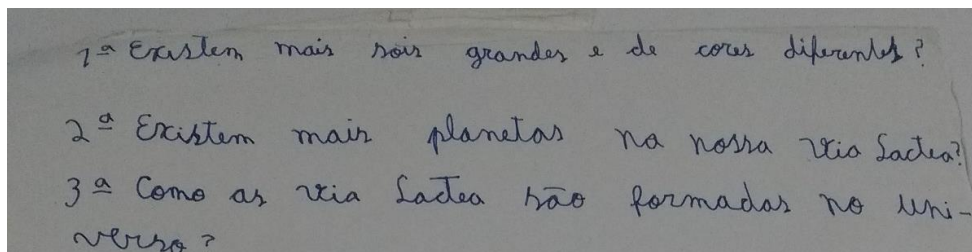 1ª Existem mais sois grandes e de cores diferentes?
2ª Existem mais planetas na nossa via Lactea?
3ª Como as via Lactea são formadas no uni-
verso?